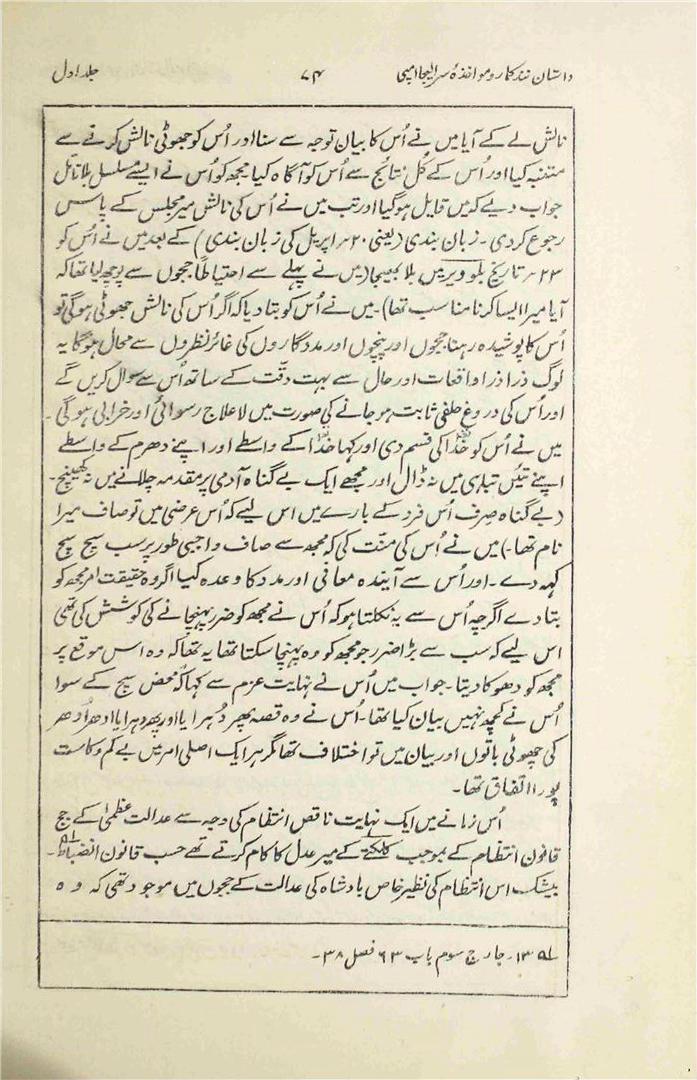 داستان نندکمار و مواخذۂ سرالیجا امپی ۷۴ جلد اول
نالش لے کے آیا میں نے اُس کا بیان توجہ سے سنا اور اُس کو جھوٹی نالش کرنے سے
متنبہ کیا اور اُس کے کُل نتائج سے اُس کو آگاہ کیا مجھ کو اُس نے ایسے مسلسل بلا تائل
جواب دیے کہ میں قایل ہوگیا اور تب میں نے اُس کی نالش میر مجلس کے پاس
رجوع کردی۔ زبان بندی (یعنی ۲۰؍ اپریل کی زبان بندی) کے بعد میں نے اُس کو
۲۳؍ تاریخ بلوویر میں بلا بھیجا (میں نے پہلے سے احتیاطاً ججوں سے پوچھ لیا تھا کہ
آیا میرا ایسا کرنا مناسب تھا)۔ میں نے اُس کو بتا دیا کہ اگر اُس کی نالش جھوٹی ہوگی تو
اُس کا پوشیدہ رہنا ججوں اور پنچوں اور مددگاروں کی غائر نظروں سے محال ہوگا یہ
لوگ ذرا ذرا واقعات اور حال سے بہت دقّت کے ساتھ اُس سے سوال کریں گے
اور اُس کی دروغ حلفی ثابت ہو جانے کی صورت میں لا علاج رسوائی اور خرابی ہوگی۔
میں نے اُس کو خدا کی قسم دی اور کہا خدا کے واسطے اور اپنے دھرم کے واسطے
اپنے تئیں تباہی میں نہ ڈال اور مجھے ایک بے گناہ آدمی پر مقدمہ چلانے میں نہ کھینچ۔
(بے گناہ صِرف اُس فرد کے بارے میں اس لیے کہ اُس عرضی میں تو صاف میرا
نام تھا۔) میں نے اُس کی منّت کی کہ مجھ سے صاف واجبی طور پر سب سچ سچ
کہہ دے۔ اور اُس سے آیندہ معافی اور مدد کا وعدہ کیا اگر وہ حقیقت امر مجھ کو
بتا دے اگرچہ اُس سے یہ نکلتا ہو کہ اُس نے مجھ کو ضرر پہنچانے کی کوشش کی تھی
اس لیے کہ سب سے بڑا ضرر جو مجھ کو وہ پہنچا سکتا تھا یہ تھا کہ وہ اس موقع پر
مجھ کو دھوکا دیتا۔ جواب میں اُس نے نہایت عزم سے کہا کہ محض سچ کے سوا
اُس نے کچھ نہیں بیان کیا تھا۔ اُس نے وہ قصہ پھر دُہرایا اور پھر دہرایا اِدھر اُدھر
کی چھوٹی باتوں اور بیان میں تو اختلاف تھا مگر ہر ایک اصلی امر میں بے کم و کاست
پورا اتفاق تھا۔
اُس زمانے میں ایک نہایت ناقص انتظام کی وجہ سے عدالت عظمیٰ کے جج
قانون انتظام کے بموجب کلکتے کے میر عدل کا کام کرتے تھے حسب قانون انضباط؎۱۔
بیشک اس انتظام کی نظیر خاص بادشاہ کی عدالت کے ججوں میں موجود تھی کہ وہ
؎۱ ۱۳۔ جارج سوم باب ۶۳ فصل ۳۸۔